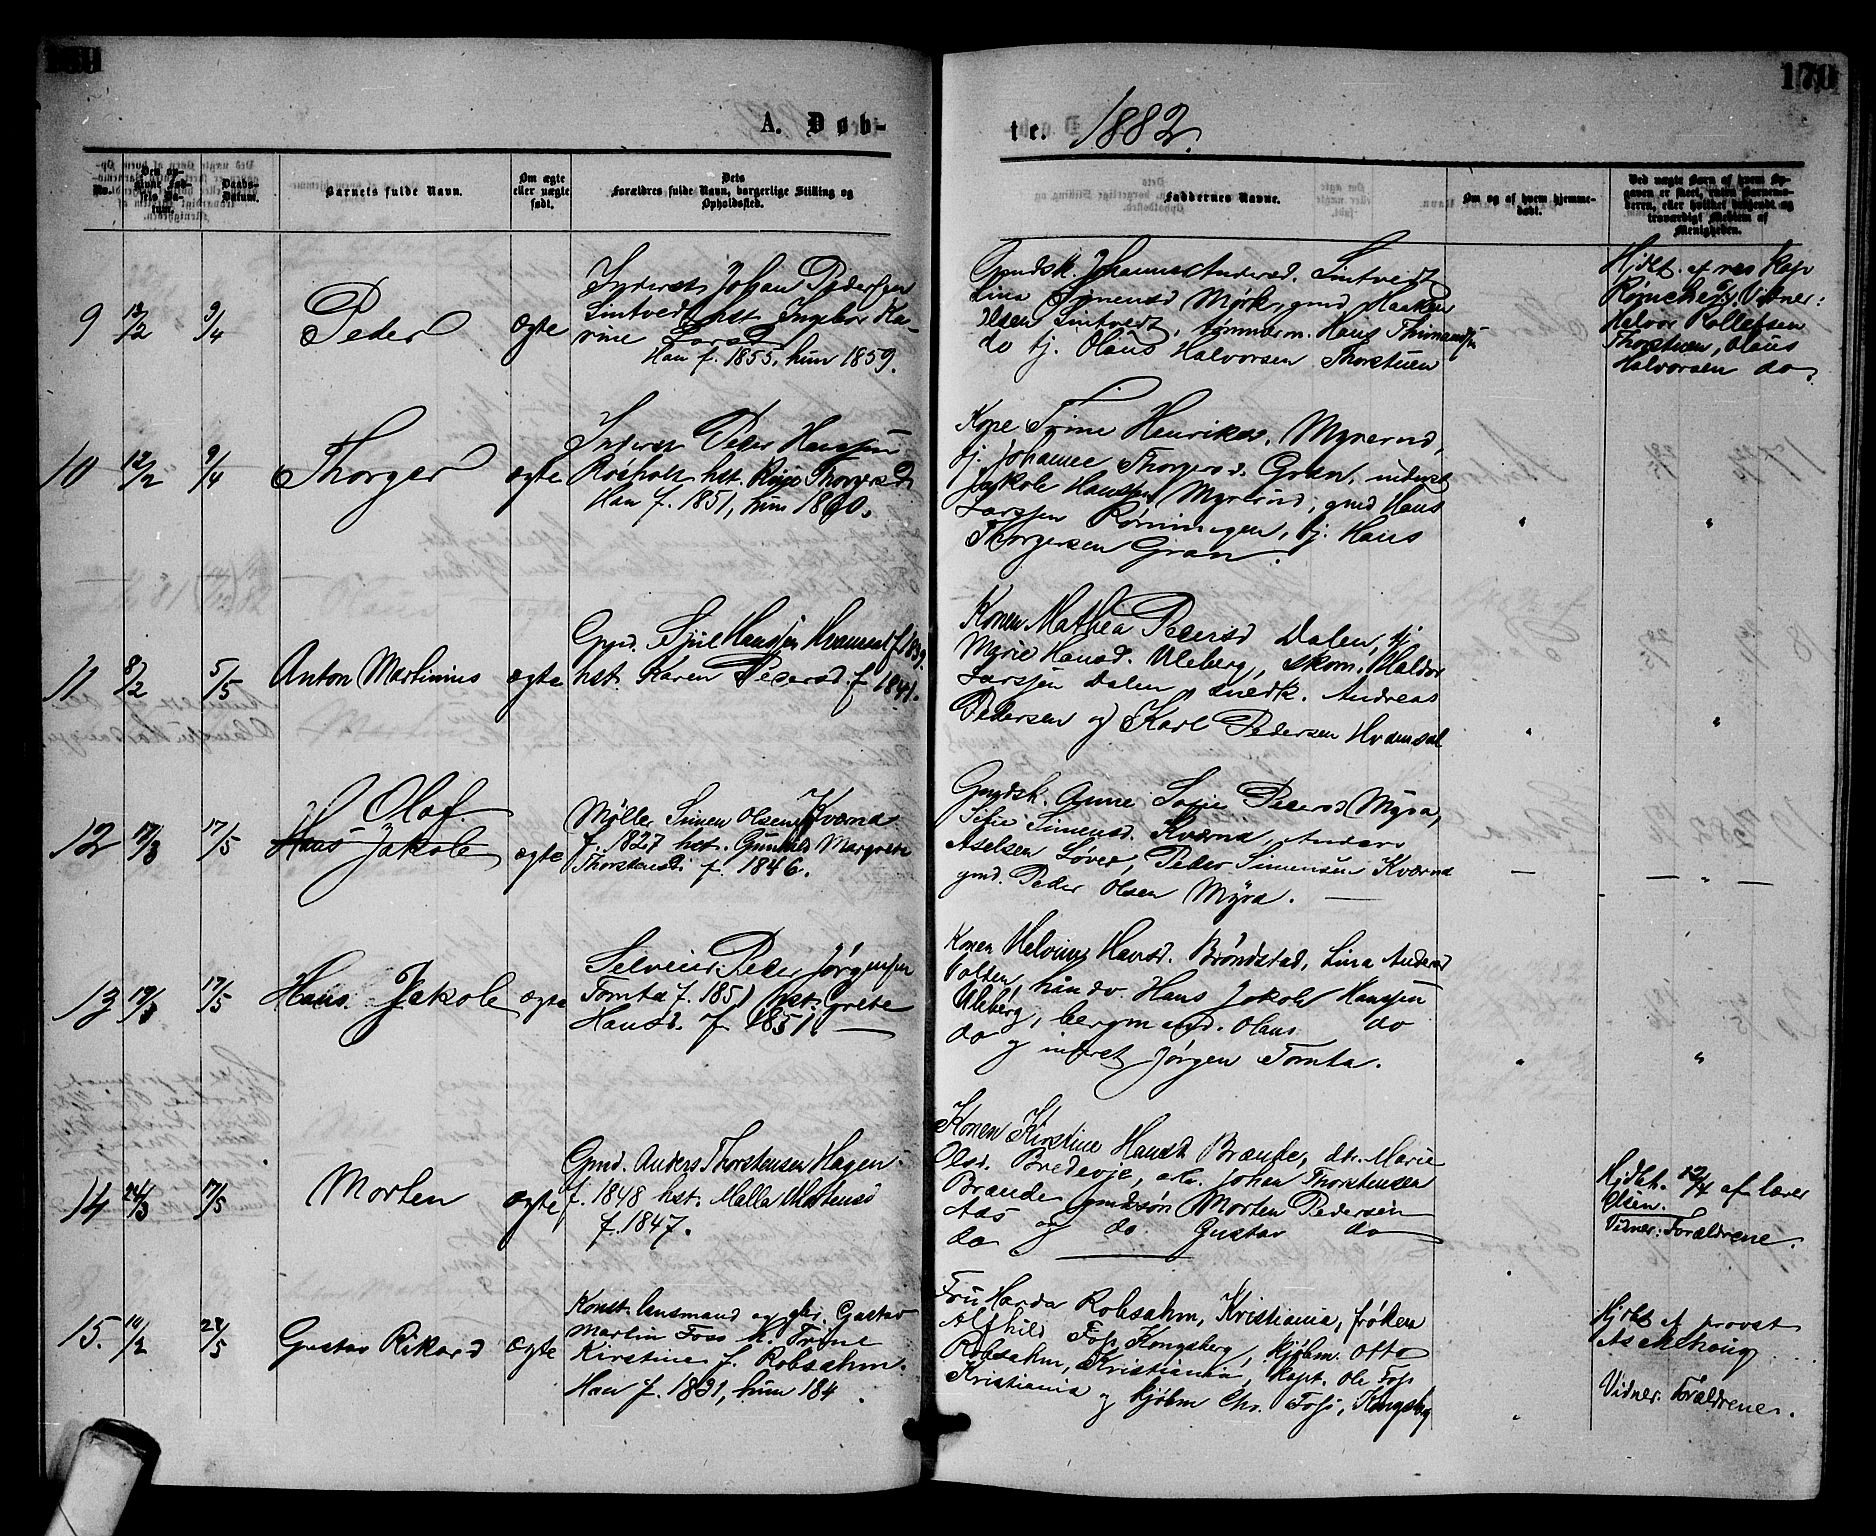 170
A. Døb-
te. 1882.
No.
Den op-
givne Fød-
sels Da-
tum.
Daabs-
Datum.
Barnets fulde Navn.
Om ægte
eller uægte
født.
Dets
Forældres fulde Navn, borgerlige Stilling og
Opholdssted.
Faddernes Navne.
Om og af hvem hjemme-
døbt.
Ved uægte Børn af hvem Op-
gaven er skeet, enten Barnemo-
deren, eller hvilket bekjendt og
troværdigt Medlem af
Menigheden.
9 12/2 3/4 Peder ægte
Inderst Johan Pedersen
Lintvedt hst. Ingebor Ka-
rine Larsd
Han f. 1855, hun 1859.
Gmdsk. Johanne Andersd. Lintvedt
Lina Simensd Mørk, gmd Haaken
Olsen Lintvedt, tømmerm. Hans
do tj. Olaus Halvorsen Thorstuen
Hjdt. af
Vidner:
Halvor Rollefsen
Thorstuen, Olaus
Halvorsen do
10 12/2 9/4 Thorger ægte
Inderst Peder Hanssen
Rosholt hst. Thorgersd
Han f. 1851, hun 1860.
Kone Trine Henriksd. Myrerud,
tj. Johanne Thorgersd. Gran, inderst
Jakob Hanssen Myrerud, gmd Hans
Larssen Rønningen, tj. Hans
Thorgersen Gran.
11 8/2 5/5 Anton Martinius ægte
Gmd. Hanssen f 1839.
hst. Karen Pedersd. f 1841.
Konen Mathea Pedersd Dalen, tj
Myrie Hansd. Uleberg, skom. Haldor
Larssen Dalen, snedk. Andreas
Pedersen og Karl Pedersen Hvamsal
12 17/3 17/5 Olaf
Hans Jakob ægte
Møller Simen Olsen Kværnd
f. 1827 hst. Gunhild Margrete
Thorstensd. f. 1846.
Gmdsk. Anne Sofie Pedersd Myra,
Sofie Simensd. Kværnd, Anders
Axelsen Løver, Peder Simensen Kværnd
gmd. Peder Olsen Myra. —
13 19/3 17/5 Hans. Jakob ægte
Selveier Peder Jørgensen
Tomta f. 1851 hst. Grete
Hansd. f 1851. —
Konen Helvine Hansd. Brøndstad, Lina Andersd
Polden, handv. Hans Jakob Hanssen
Uleberg, bergmand. Olaus do
do og inderst Jørgen Tomta.
14 24/3 17/5 Morten ægte
Gmd. Anders Thorstensen Hagen
f. 1848 hst. Malla Mortensd
f. 1847.
Konen Kirstine Hansd Brænde, dt. Marie
Olsd. Bredevje, arb. Johan Thorstensen
Brænde gmdsøn Morten Pedersen
Aas og do Gustav do
do
Hjdt. 12/4 af lærer
Olsen.
Vidner: Forældrene.
15. 10/2 28/5 Gustav Rikard ægte
Konst. lensmand og gbr. Gustav
Martin Foss h. Trine
Kirstine f. Robsahm.
Han f. 1831, hun 184 .
Fru Harda Robsahm, Kristiania, frøken
Alfhild Foss Kongsberg, kjøbm. Otto
Robsahm, Kristiania, kapt. Ole Foss
Kristiania og kjøbm Chr. Foss, Kongsbg
Hjdt af provst
Aschehoug
Vidner: Forældrene.